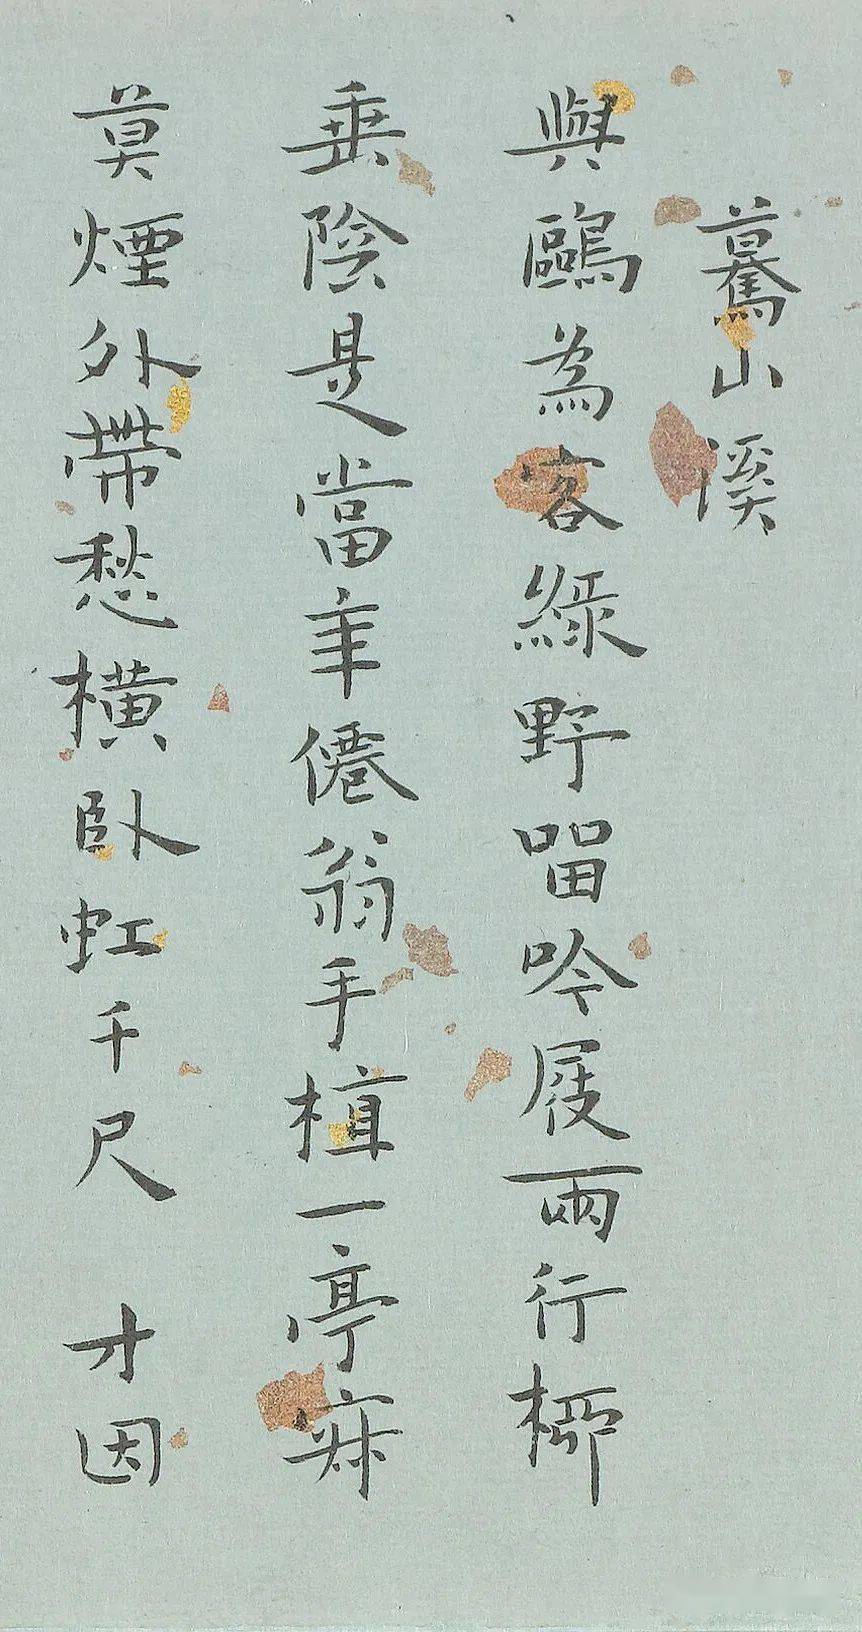 驀山溪
與鷗為客綠野留吟屐兩行柳
垂陰是當年僊翁手植一亭寂
莫煙外帶愁橫臥虹千尺 才因